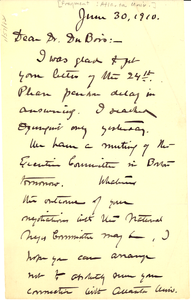 June 30, 1910.
Dear Dr. Du Bois:
I was glad to get
your letter of the 24th.
Please pardon delay in
answering. I reached
Ogunquit only yesterday.
We have a meeting of the
Executive Committee in Boston
tomorrow. Whatever
the outcome of your
negotiations with the National
Negro Committee may be, I
hope you can arrange
not to absolutely sever your
connection with Atlanta Univ.